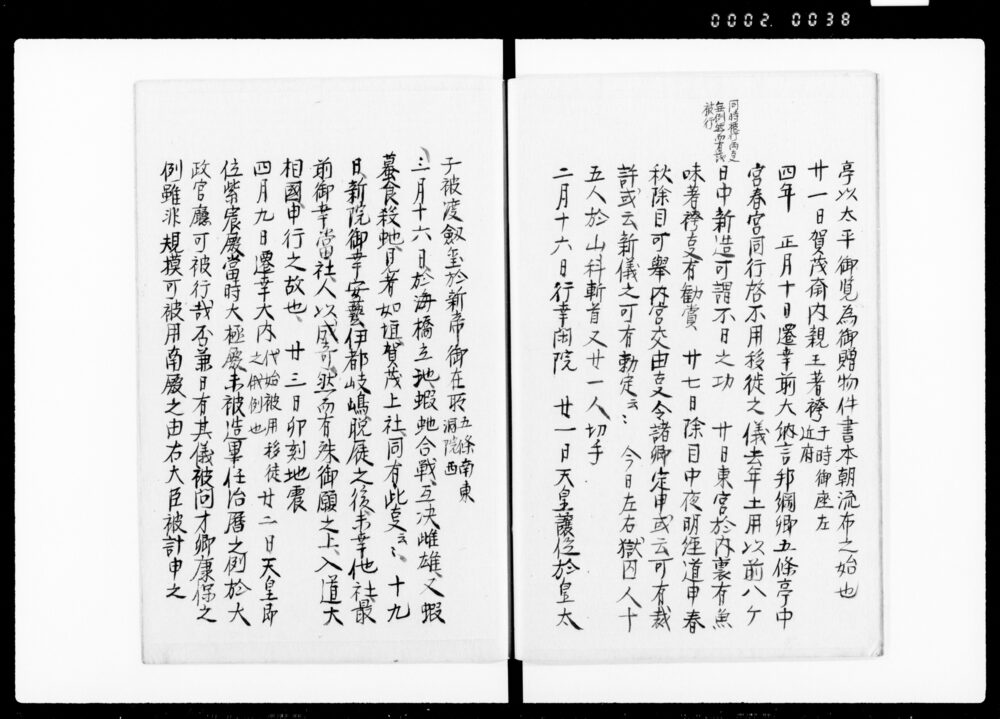 0002.0038
亭以太平御覧為御贈物件書本朝流布之始也
廿一日賀茂斎内親王著袴于時御座左近府
四年　正月十日遷幸前大納言邦綱卿五條亭中
宮春宮同行啓不用移徙之儀去年土用以前八ヶ
日中新造可謂不日之功　廿日東宮於内裏有魚
味著袴支有勧賞　廿七日除目中夜明経道申春
同時被行両支
無例然而有議
被行
秋除目可挙内宮交由支令諸卿定申或云可有裁
許或云新儀之可有勅定云々　今日左右獄囚人十
五人於山科斬首又廿一人切手
二月十六日行幸閑院　廿一日天皇譲位於皇太
子被渡劔璽於新帝御在所五條南東洞院西
三月十六日於海橋立池蝦虵合戦互决雌雄又蝦
蟇食殺虵見者如垣賀茂上社同有此支云々　十九
日新院御幸安藝伊都岐嶋脱屣之後未幸他社最
前御幸當社人以成奇然而有殊御願之上入道大
相國申行之故也　廿三日卯刻地震
四月九日遷幸大内代始被用移徙之儀例也廿二日天皇即
位紫宸殿當時大極殿未被造畢任治暦之例於大
政官廳可被行哉否兼日有其儀被問才卿康保之
例雖非規模可被用南殿之由右大臣被計申之